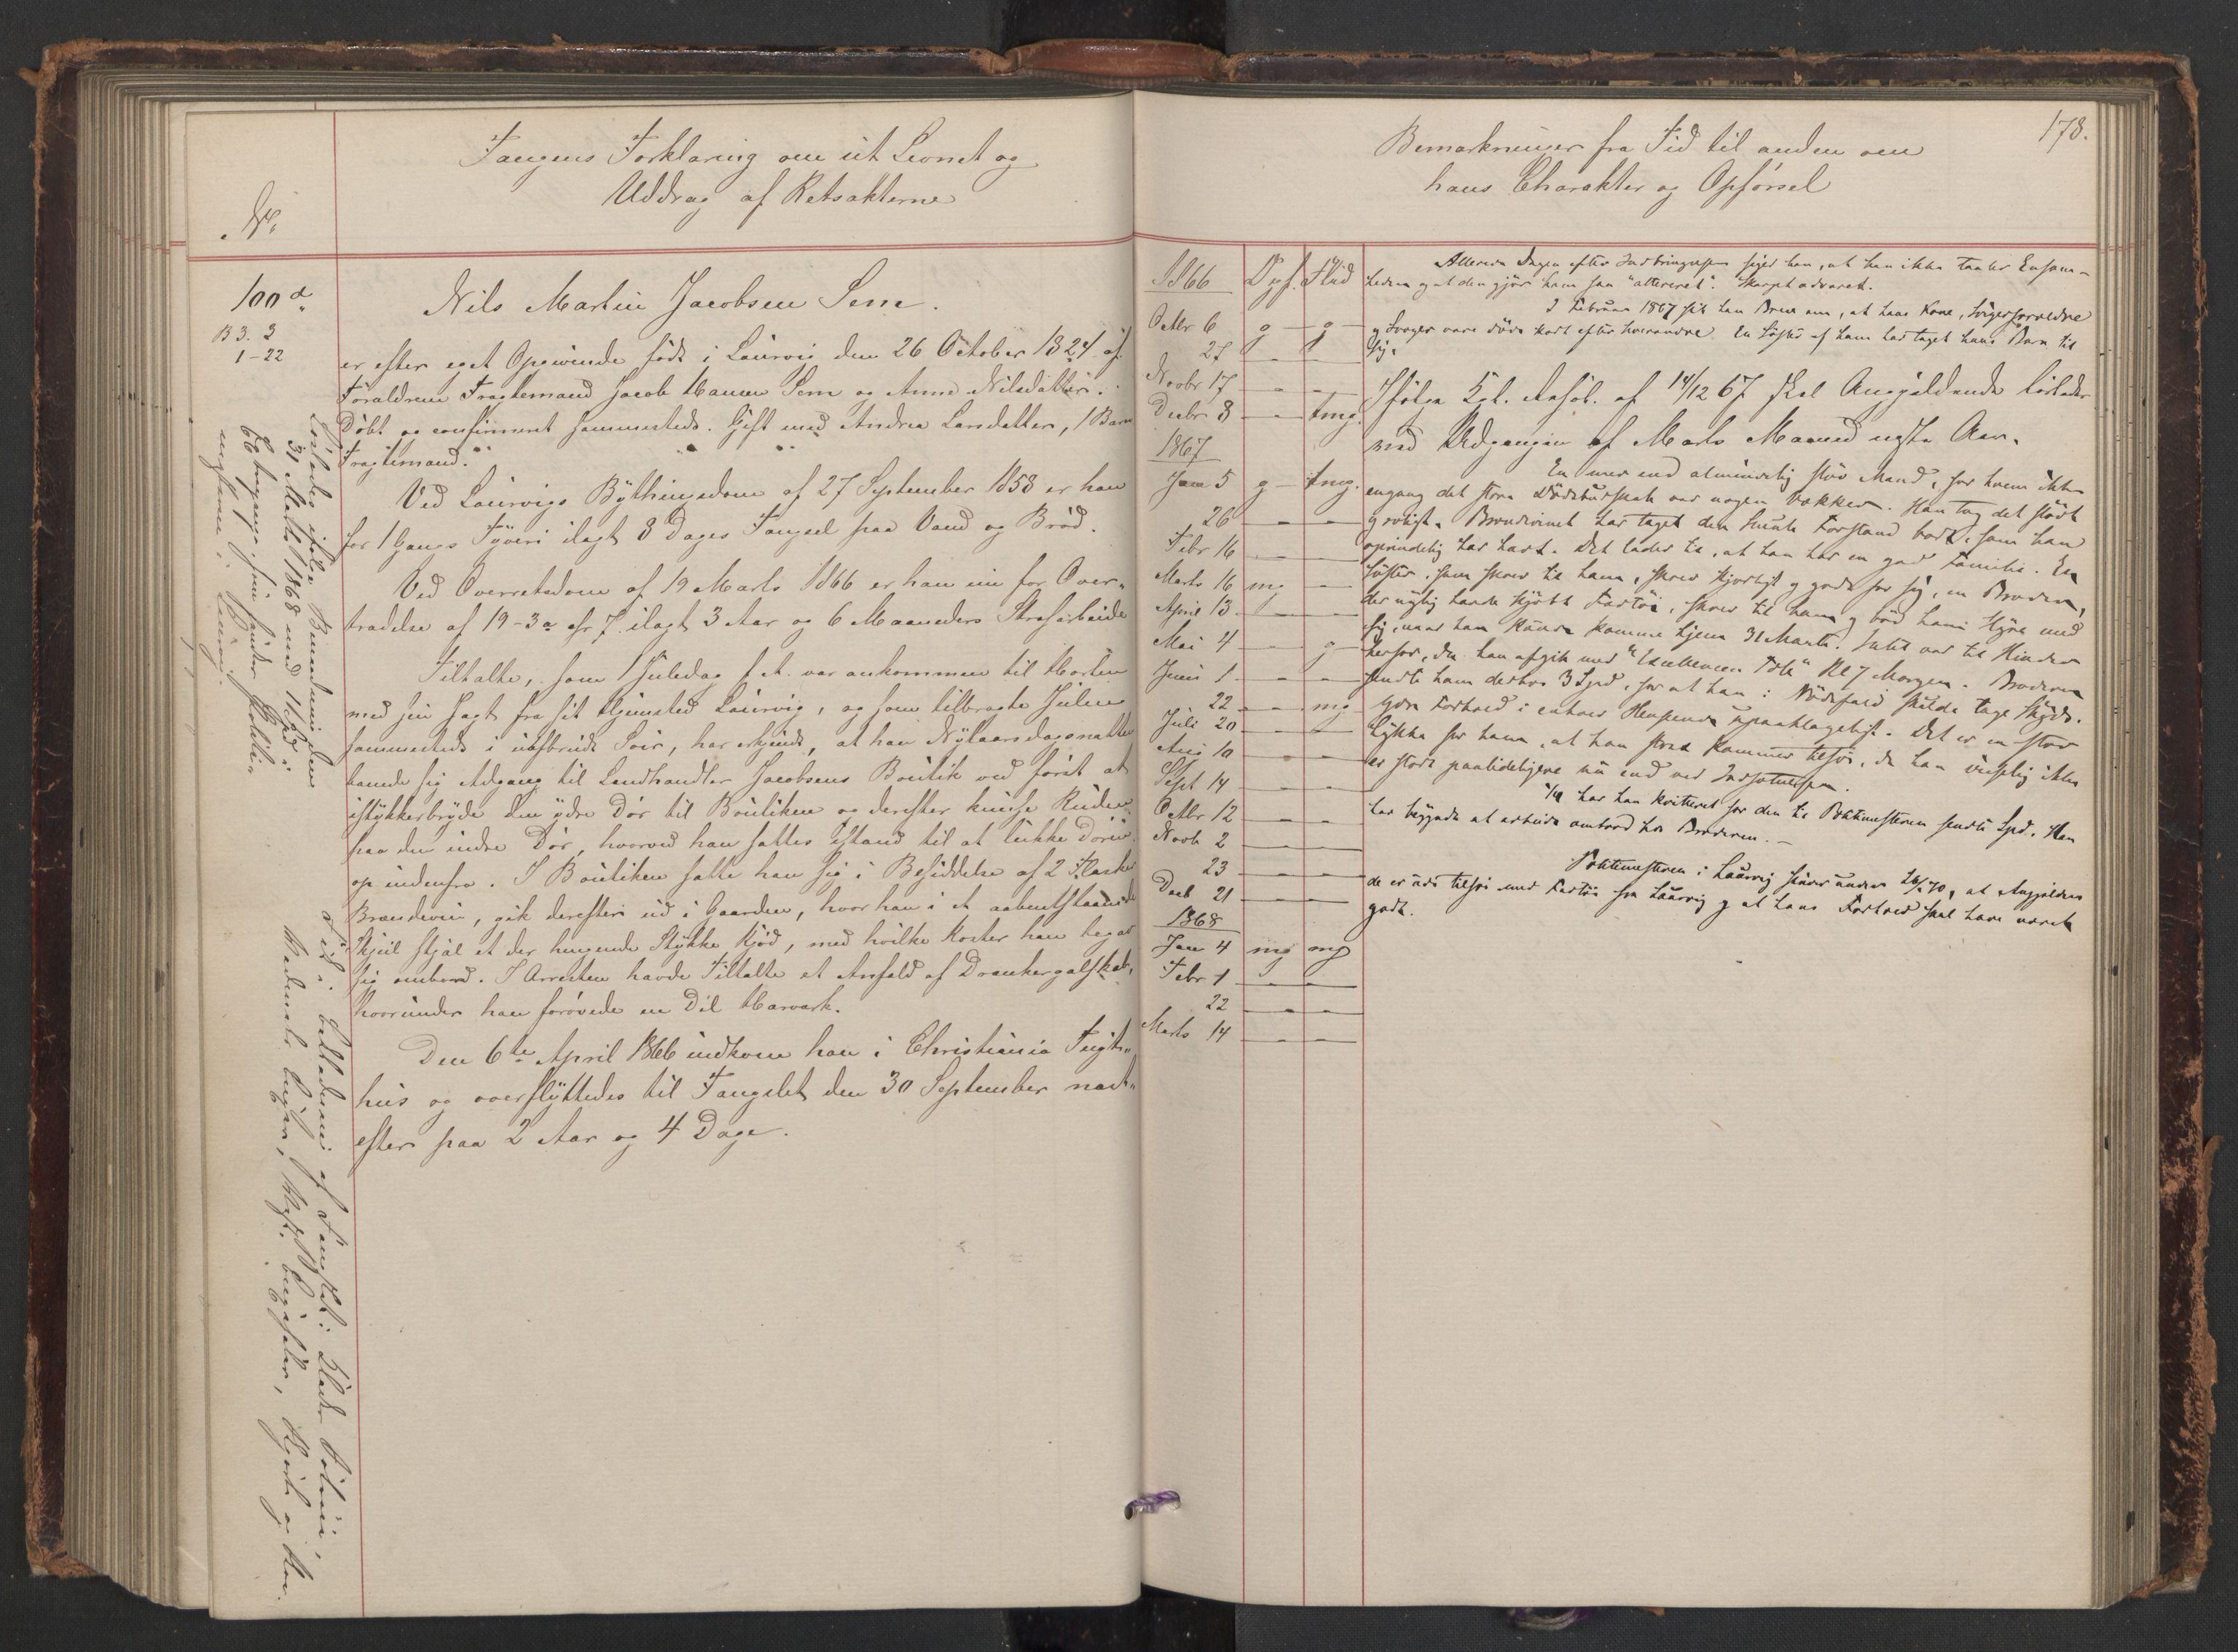 Fangens Forklaring om sit Levnet og
Uddrag af Retsakterne
No.
100 d
B 3. 3
1-22
Nils Martin Jacobsen Sem.
er efter eget Opgivende født i Laurvig den 26 October 1824 af
Forældrene Fragtemand Jacob Hansen Sem og Anne Nilsdatter.
Døbt og confirmeret sammesteds. Gift med Andrea Larsdatter, 1 Barn
Fragtemand.
Ved Laurvigs Bythingsdom af 27 September 1858 er han
for 1 Gangs Tyveri ilagt 8 Dages Fængsel paa Vand og Brød.
Ved Overretsdom af 19 Marts 1866 er han nu for Over-
trædelse af 19-3a cfr 7 ilagt 3 Aar og 6 Maaneders Strafarbeide
Tiltalte, som 1 Juledag f. A. var ankommen til Horten
med sin Jagt fra sit Hjemsted Laurvig, og som tilbragte Julen
sammesteds i uafbrudt Svir, har erkjendt, at han Nytaarsdagsnatten
banede sig Adgang til Landhandler Jacobsens Boutik ved først at
istykkerbryde den ydre Dør til Boutiken og derefter knuse Ruden
paa den indre Dør, hvorved han sattes istand til at lukke Døren
op indenfra. I Boutiken satte han sig i Besiddelse af 2 Flasker
Brændeviin, gik derefter ud i Gaarden, hvor han i et aabentstaaende
Skjul stjal et der hængende Stykke Kjød, med hvilke Koster han begav
sig ombord. I Arresten havde Tiltalte et Anfald af Drankergalskab,
hvorunder han forøvede en Del Hærværk.
Den 6te April 1866 indkom han i Christiania Tugt-
hus og overflyttedes til Fængslet den 30 September næst-
efter paa 2 Aar og 4 Dage.
Løslades ifølge Benaadning den
31 Marts 1868 med
sin under Politi-
mesteren i Laurvig.
Tid: Udtrædende af Fængslet: Klæder
178.
Bemærkninger fra Tid til anden om
hans Charakter og Opførsel
1866 Opf. Flid
Octbr 6 g g
27 — —
Novbr 17 — —
Decbr 8 — tmg.
1867
Jan 5 g tmg.
26 — —
Febr 16 — —
Marts 16 mg —
April 13 — —
Mai 4 — g
Juni 1 — —
22 — mg
Juli 20 — —
Aug 10 — —
Sept 14 — —
Octbr 12 — —
Novb 2 — —
23 — —
Decb 21 — —
1868
Jan 4 mg mg
Febr 1 — —
22 — —
Marts 14 — —
Allerede Dagen efter Indbringelsen siger han, at han ikke taaler Ensom-
heden og at den gjør ham saa "altereret". Skarpt advaret.
I Februar 1867 fik han Brev om, at hans Kone, Svigerforældre
og Svoger vare døde kort efter hverandre. En Søster af ham har taget hans Barn til
sig.
Ifølge Kgl. Resol. af 14/12 67 skal Angjældende løslades
med Udgangen af Marts Maaned næste Aar.
En mer end almindelig sløv Mand, for hvem ikke
engang det store Dødsbudskab var nogen Vækker. Han tog det sløvt
og roligt. Brændevinet har taget den Smule Forstand bort, som han
oprindelig har havt. Det lader til, at han har en god Familie. En
Søster, som skrev til ham, skrev kjærligt og godt for sig, en Broder,
der nylig havde kjøbt Fartøi, skrev til ham og bød ham Hyre med
sig, naar han kunde komme hjem 31 Marts. Intet var til Hinder
herfor, da han afgik med "Excellencen Toll" Kl 7 Morgen. Broderen
sendte ham derhos 3 Spd, for at han i Nødsfald skulde tage Skyds.
Hans Forhold i enhver Henseende upaaklageligt. Det er en stor
Lykke for ham, at han strax kommer tilsøs, da han visselig ikke
er stort paalideligere nu end ved Indsættelsen.
1/4 har han kvitteret for den til Politimesteren sendte Spd. Han
har begyndt at arbeide ombord hos Broderen.
Politimesteren i Laurvig skriver under 26/2 70, at Angjælden-
de er ude tilsøs med Fartøi fra Laurvig og at hans Forhold skal have været
godt.